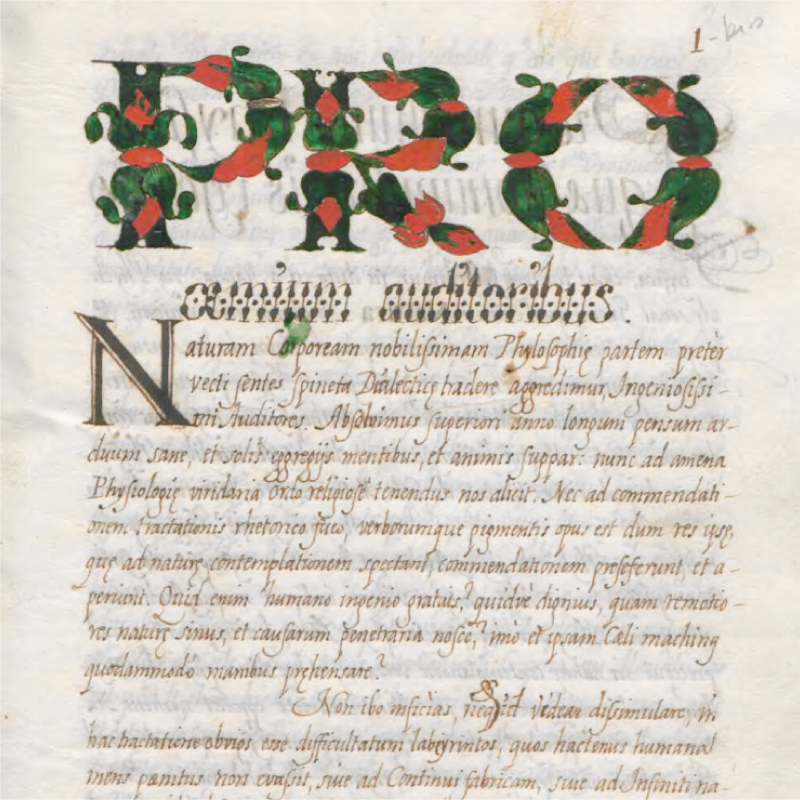 1-bis
PRO
œmium auditoribus.
Naturam Corpoream nobilissimam Phylosophię partem preter
vecti sentes spineta Dialecticę tradere aggredimur, Ingeniosissi-
mi Auditores. Absolvimus superiori anno longum pensum ar-
duum sane, et solis eggregijs mentibus, et animis suppar: nunc ad amena
Physiologię viridaria Ordo religiosè tenendus nos alicit. Nec ad commendati-
onem tractationis rhetorico fuco, verborumque pigmentis opus est dum res ipsę,
quę ad naturę contemplationem spectant, commendationem preseferunt, et a-
periunt. Quid enim humano ingenio gratius? quidve dignius, quam remotio-
res naturę sinus, et causarum penetraria nosce? imò et ipsam Cæli machinę
quodammodò manibus pręhensare?
Non ibo inficias, nequid videar dissimulare, in
hac tractatione obvios esse difficultatum labyrintos, quos hactenus humana
mens pænitus non evasit, sive ad Continui fabricam, sive ad Infiniti na-